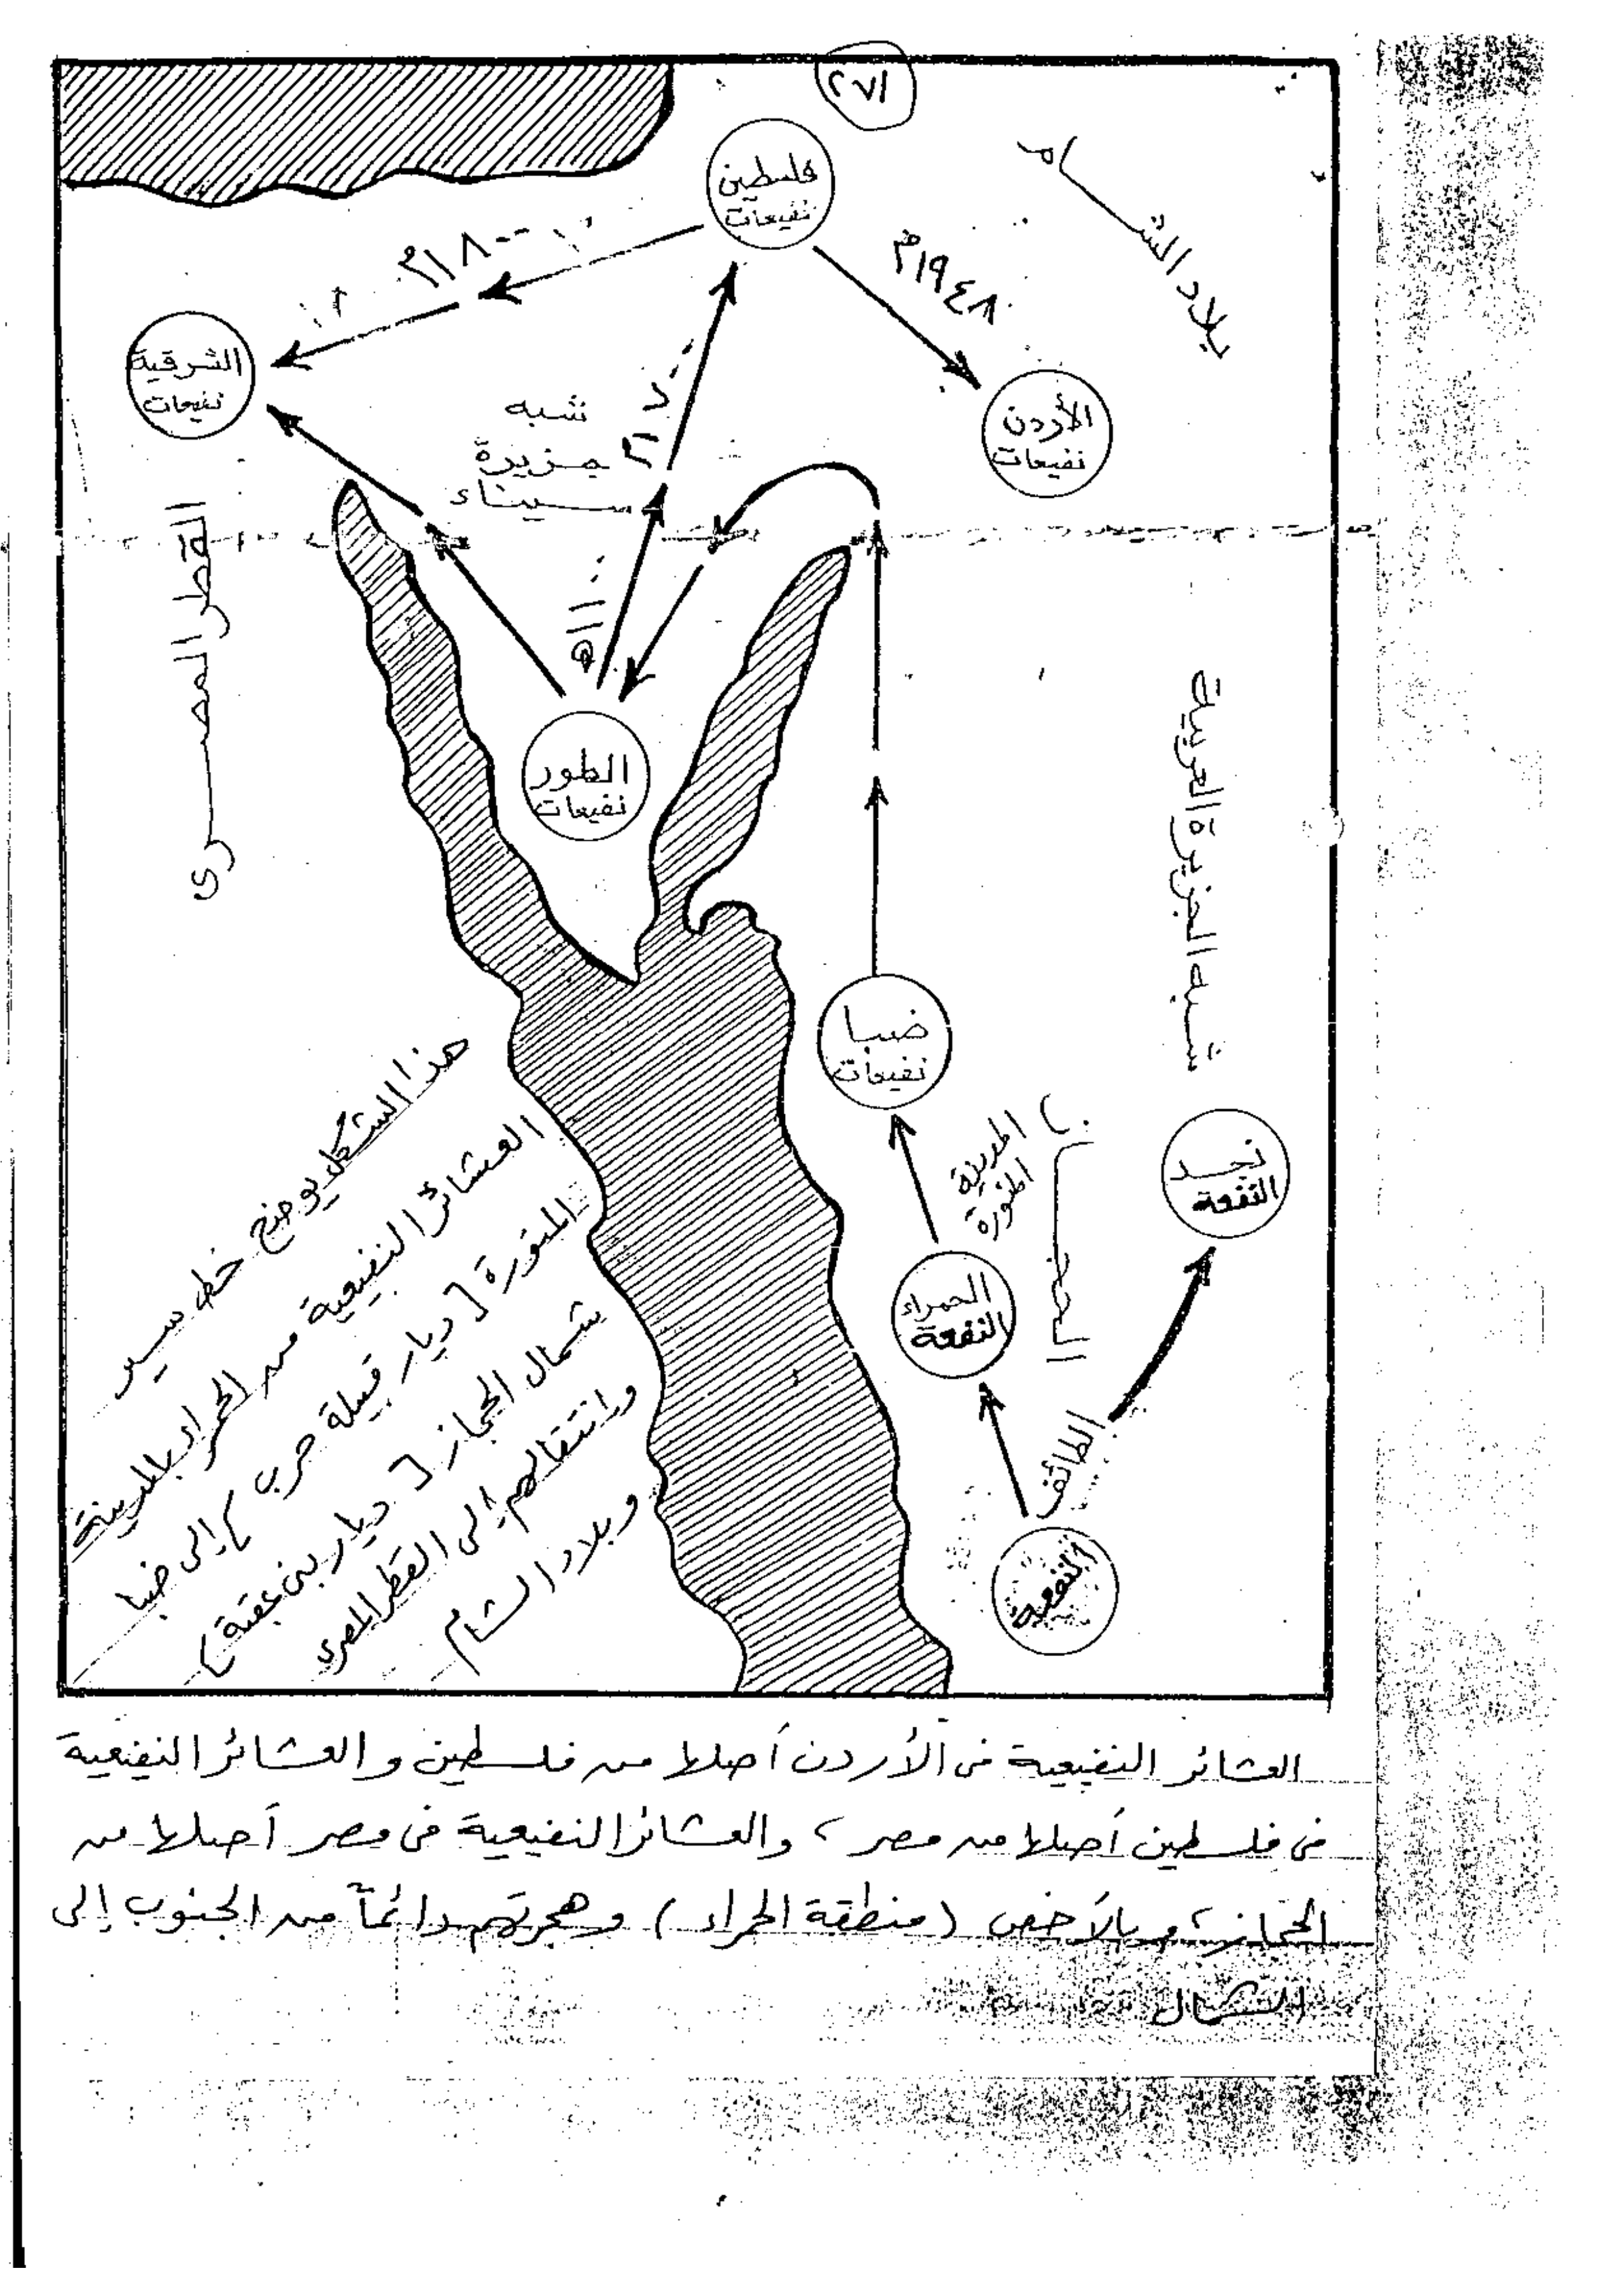 ٢٧١
بلاد الشام
فلسطين
نفيعات
١٨٠٠م
١٩٤٨م
الشرقية
نفيعات
الأردن
نفيعات
شبه
جزيرة
سيناء
١٧٠٠م
١١٠٠هـ
القطر المصرى
الطور
نفيعات
شبه الجزيرة العربية
ضبا
نفيعات
المدينة
المنورة
الحجاز
نجد
النفعة
الحمراء
النفعة
الطائف
النفعة
هذا الشكل يوضح خط سير
العشائر النفيعية من الحمراء بالمدينة
المنورة [ديار قبيلة حرب] إلى ضبا
شمال الحجاز [ديار بنى عقبة]
وانتقالهم إلى القطر المصري
وبلاد الشام
العشائر النفيعية فى الأردن أصلها من فلسطين والعشائر النفيعية
فى فلسطين أصلها من مصر، والعشائر النفيعية فى مصر أصلها من
الحجاز، وبالأخص (منطقة الحمراء) وهجرتهم دائماً من الجنوب إلى
الشمال